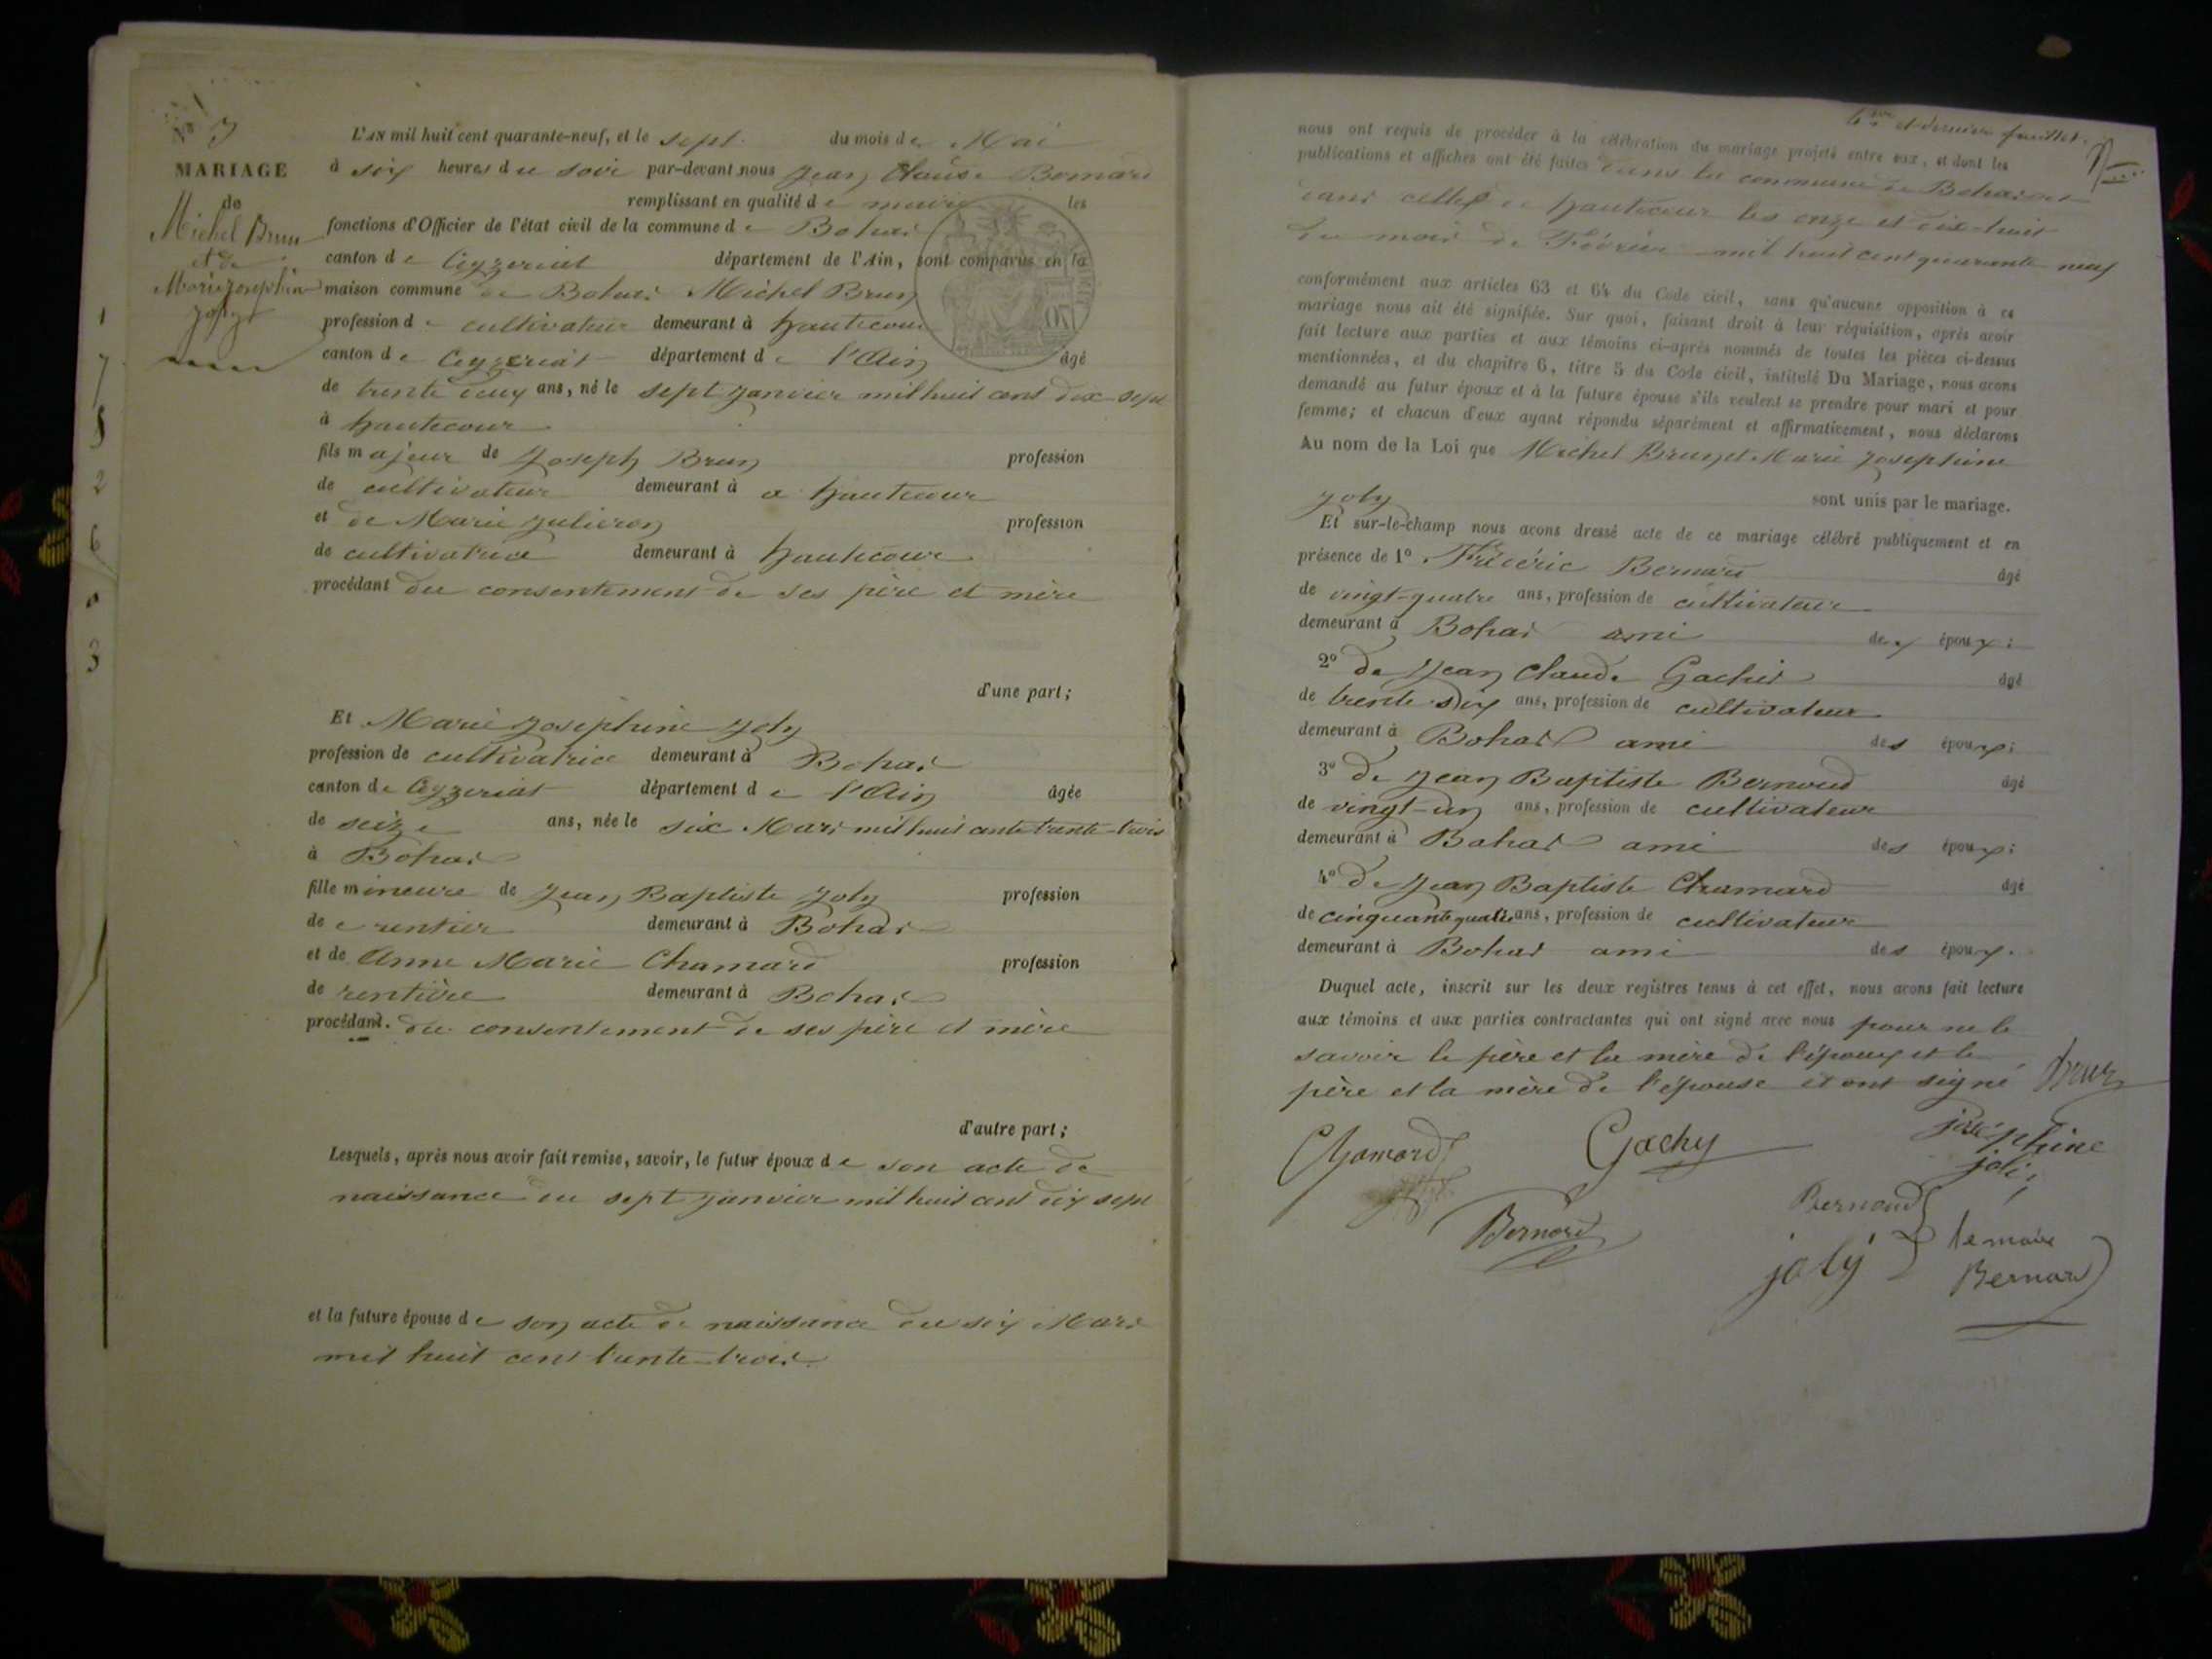 7
MARIAGE
de
Michel Brun
et de
Marie Josephine
Joly
1
7
8
2
6
0
3
L'AN mil huit cent quarante-neuf, et le sept du mois de Mai
à six heures du soir par-devant nous Jean Claude Bernard
remplissant en qualité de maire les
fonctions d'Officier de l'état civil de la commune de Bohas
canton de Ceyzeriat département de l'Ain, sont comparus en la
maison commune de Bohas Michel Brun
profession de cultivateur demeurant à hautecour
canton de Ceyzeriat département de l'Ain âgé
de trente deux ans, né le sept janvier mil huit cent dix-sept
à hautecour
fils majeur de Joseph Brun profession
de cultivateur demeurant à a hautecour
et de Marie Julieron profession
de cultivatrice demeurant à hautecour
procédant du consentement de ses père et mère
d'une part;
Et Marie Josephine Joly
profession de cultivatrice demeurant à Bohas
canton de Ceyzeriat département de l'Ain âgée
de seize ans, née le six Mars mil huit cent trente-trois
à Bohas
fille mineure de Jean Baptiste Joly profession
de rentier demeurant à Bohas
et de Anne Marie Chamard profession
de rentière demeurant à Bohas
procédant. du consentement de ses père et mère
d'autre part;
Lesquels, après nous avoir fait remise, savoir, le futur époux de son acte de
naissance du sept janvier mil huit cent dix sept
et la future épouse de son acte de naissance du six Mars
mil huit cent trente-trois
et dernier feuillet
nous ont requis de procéder à la célébration du mariage projeté entre eux, et dont les
publications et affiches ont été faites dans la commune de Bohas et
dans celle de hautecour les onze et dix-huit
du mois de Février mil huit cent quarante neuf
conformément aux articles 63 et 64 du Code civil, sans qu'aucune opposition à ce
mariage nous ait été signifiée. Sur quoi, faisant droit à leur réquisition, après avoir
fait lecture aux parties et aux témoins ci-après nommés de toutes les pièces ci-dessus
mentionnées, et du chapitre 6, titre 5 du Code civil, intitulé Du Mariage, nous avons
demandé au futur époux et à la future épouse s'ils veulent se prendre pour mari et pour
femme; et chacun d'eux ayant répondu séparément et affirmativement, nous déclarons
Au nom de la Loi que Michel Brun et Marie Josephine
Joly sont unis par le mariage.
Et sur-le-champ nous avons dressé acte de ce mariage célébré publiquement et en
présence de 1º Fréderic Bernard âgé
de vingt-quatre ans, profession de cultivateur
demeurant à Bohas ami des époux;
2º de Jean Claude Gachis âgé
de trente-six ans, profession de cultivateur
demeurant à Bohas ami des époux;
3º de Jean Baptiste Bernoud âgé
de vingt-un ans, profession de cultivateur
demeurant à Bohas ami des époux;
4º de Jean Baptiste Chamard âgé
de cinquante quatre ans, profession de cultivateur
demeurant à Bohas ami des époux.
Duquel acte, inscrit sur les deux registres tenus à cet effet, nous avons fait lecture
aux témoins et aux parties contractantes qui ont signé avec nous pour ne le
savoir le père et la mère de l'époux et le
père et la mère de l'épouse et ont signé Brun
Chamard Gachy joséphine
joli
Bernard Bernoud le maire
joly Bernard